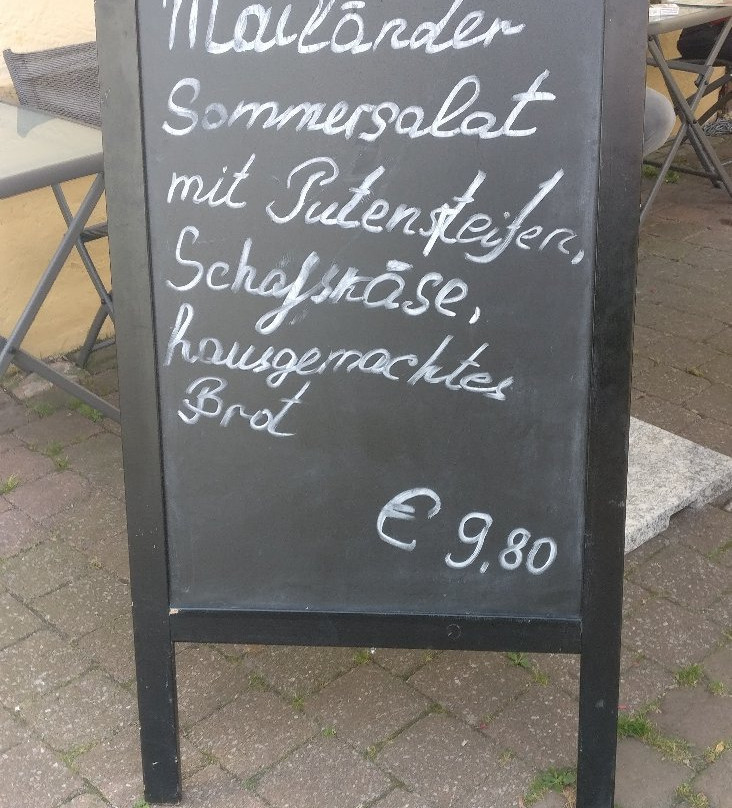 Mailänder
Sommersalat
mit Putensteifen,
Schafskäse,
hausgemachtes
Brot
€ 9,80